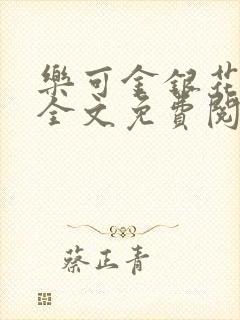 樂可金銀花
全文免費閱
蔡正青